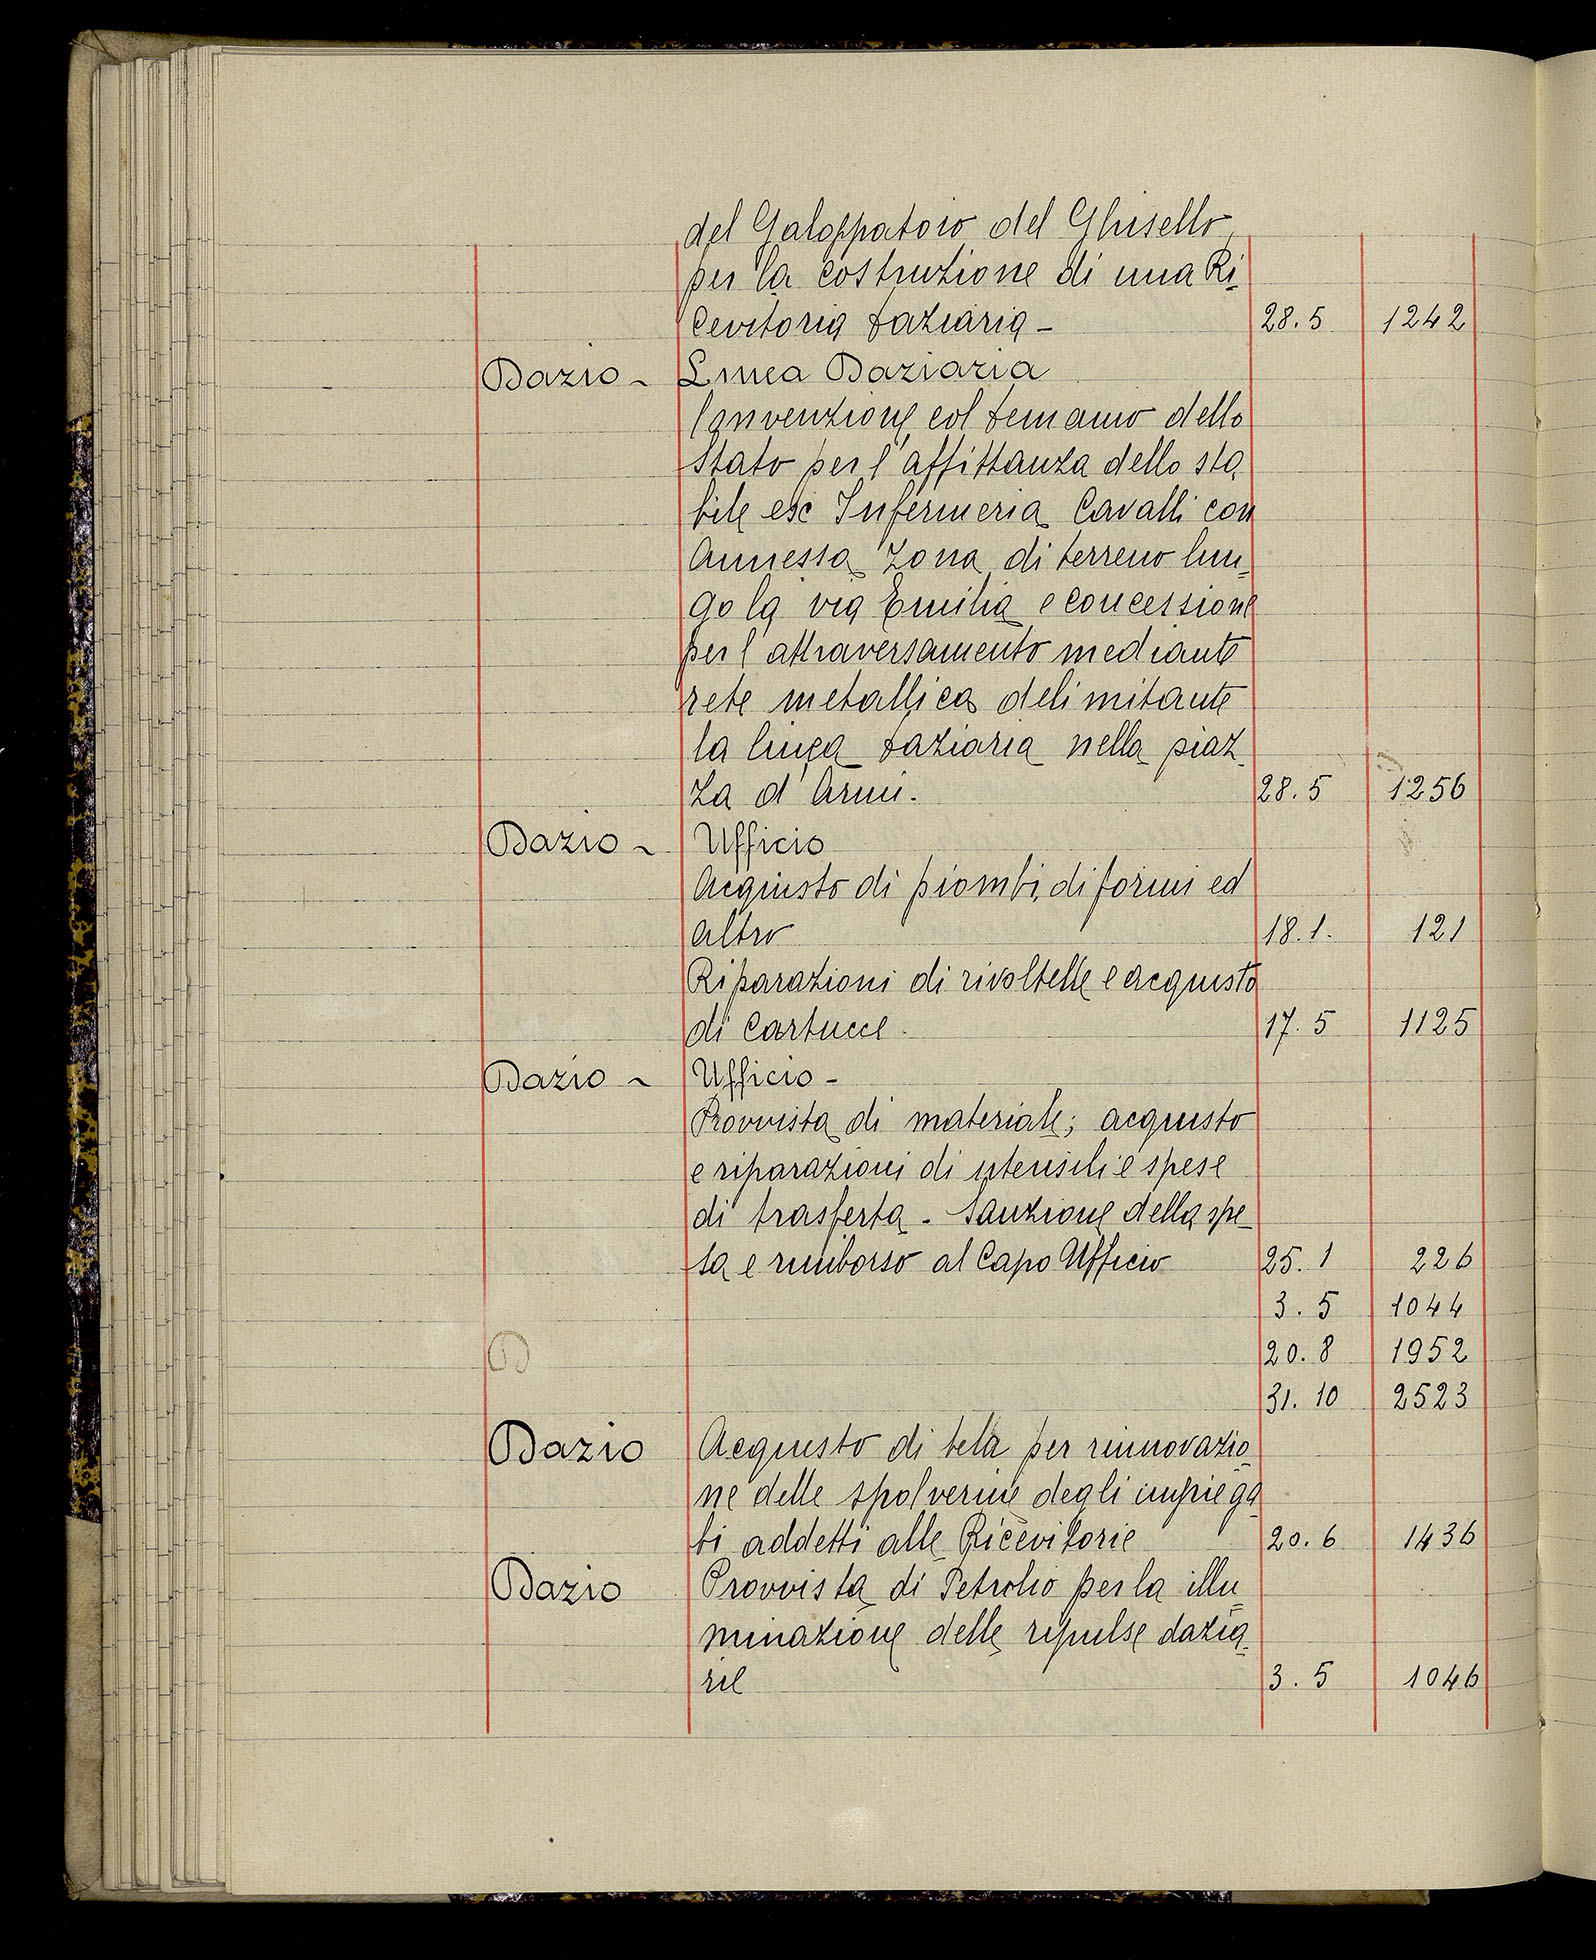 del Galoppatoio del Ghisello
per la costruzione di una Ri-
cevitoria daziaria - 28.5 1242
Dazio - Linea Daziaria
Convenzione col demanio dello
Stato per l'affittanza dello sta-
bile esc Infermeria Cavalli con
annessa zona di terreno lun-
go la via Emilia e concessione
per l'attraversamento mediante
rete metallica delimitante
la linea daziaria nella piaz-
za d'Armi. 28.5 1256
Dazio - Ufficio
Acquisto di piombi, di formi ed
altro 18.1. 121
Riparazioni di rivoltelle e acquisto
di cartucce. 17.5 1125
Dazio - Ufficio -
Provvista di materiale; acquisto
e riparazioni di utensili e spese
di trasferta - Sanzione della spe-
sa e rimborso al Capo Ufficio 25.1 226
3.5 1044
D 20.8 1952
31.10 2523
Dazio Acquisto di tela per rinnovazio-
ne delle spolverine degli impiega-
ti addetti alle Ricevitorie 20.6 1436
Dazio Provvista di Petrolio per la illu-
minazione delle ripulse dazia-
rie 3.5 1046